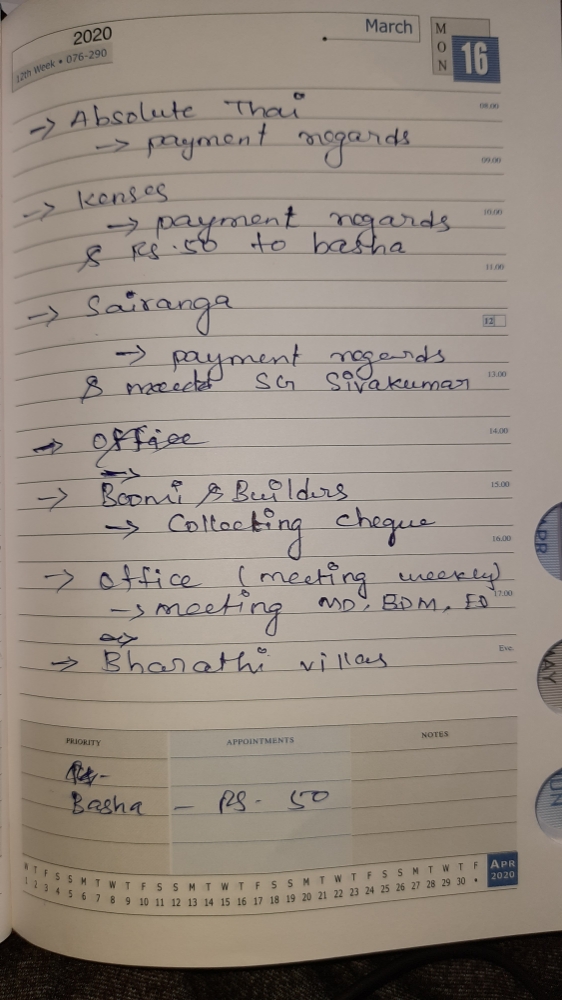 2020
12th Week • 076-290
March
MON
16
→ Absolute Thai
08.00
→ payment regards
09.00
→ Kenses
→ payment regards
10.00
& Rs.50 to basha
11.00
→ Sairanga
12
→ payment regards
13.00
& meeet SG Sivakumar
→ Office
14.00
→ Boomi & Builders
15.00
→ Collecting cheque
16.00
→ Office (meeting weekly)
→ meeting MD, BDM, ED
17.00
→ Bharathi villas
Eve.
PRIORITY APPOINTMENTS NOTES
Basha - RS. 50
W T F S S M T W T F S S M T W T F S S M T W T F S S M T W T F
1 2 3 4 5 6 7 8 9 10 11 12 13 14 15 16 17 18 19 20 21 22 23 24 25 26 27 28 29 30 •
APR
2020
APR
MAY
UN